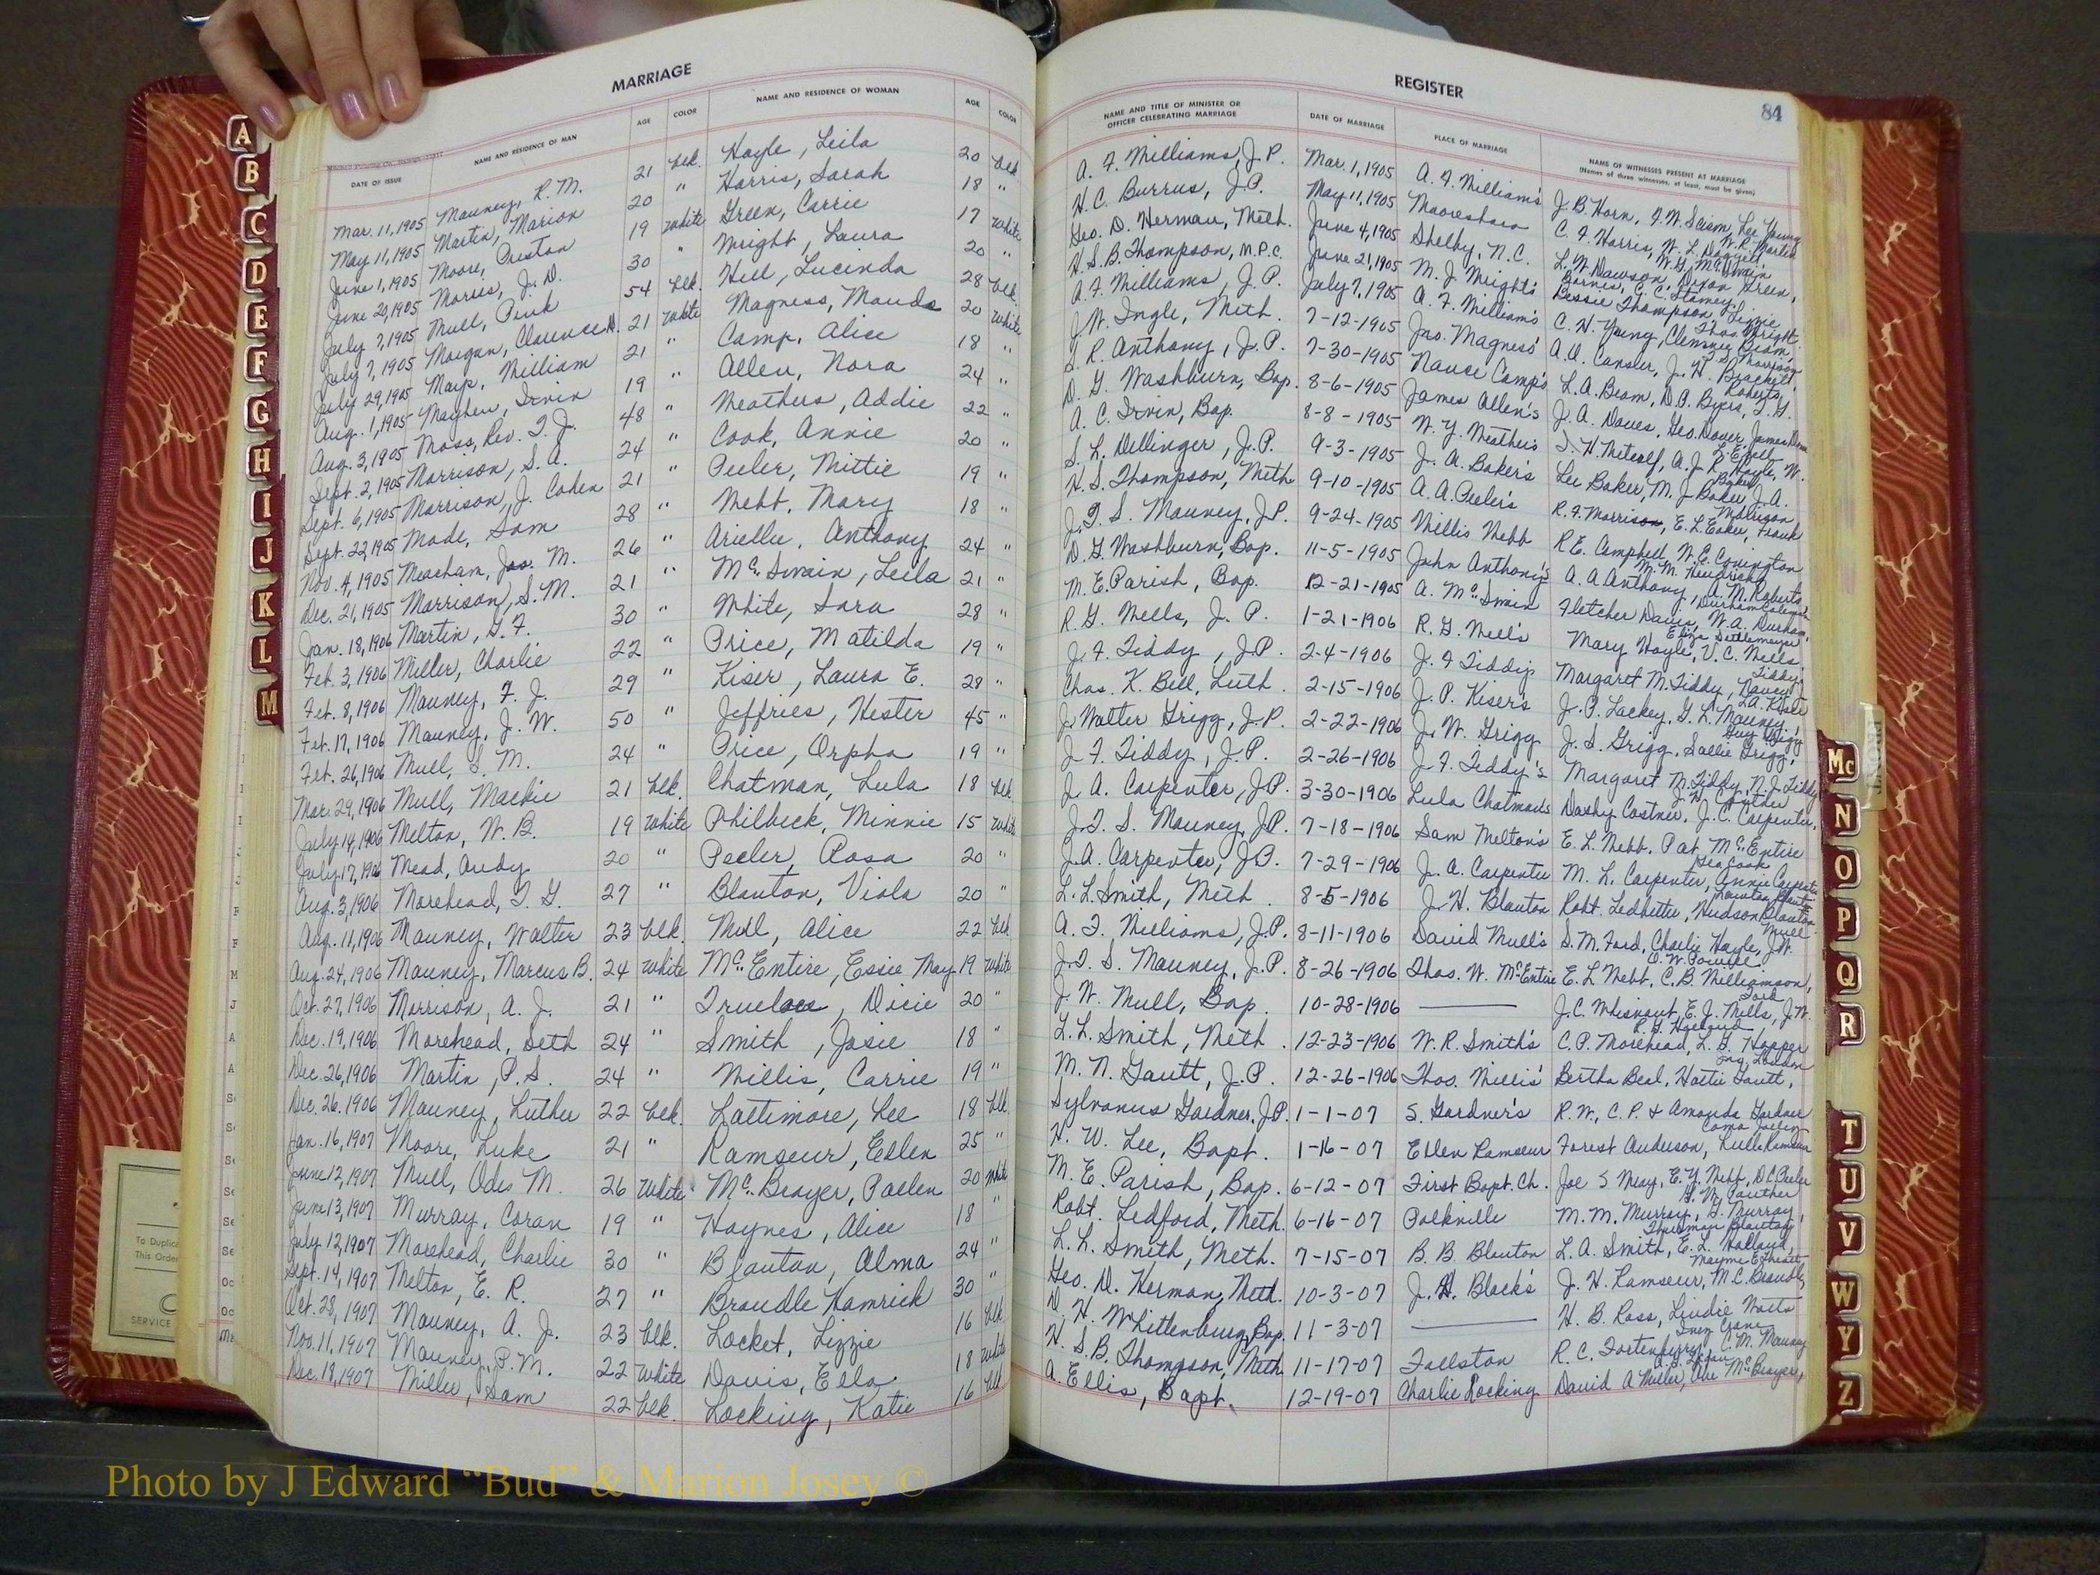 MARRIAGE
DATE OF ISSUE NAME AND RESIDENCE OF MAN AGE COLOR NAME AND RESIDENCE OF WOMAN AGE COLOR
Mar. 11, 1905 Mauney, R. M. 21 blk. Hoyle, Leila 20 blk
May 11, 1905 Martin, Marion 20 " Harris, Sarah 18 "
June 1, 1905 Moore, Preston 19 White Green, Carrie 17 White
June 20, 1905 Morris, J. D. 30 " Wright, Laura 20 "
July 7, 1905 Mull, Pink 54 blk. Hill, Lucinda 28 blk.
July 7, 1905 Morgan, Clarence 21 White Magness, Maude 20 White
July 29, 1905 William 21 " Camp, Alice 18 "
Aug. 1, 1905 Mayhew, Irvin 19 " Allen, Nora 24 "
Aug. 3, 1905 Moss, Rev. T. J. 48 " Weathers, Addie 22 "
Sept. 2, 1905 Morrison, S. A. 24 " Cook, Annie 20 "
Sept. 6, 1905 Morrison, J. Cohen 21 " Peeler, Mittie 19 "
Sept. 22, 1905 Mode, Sam 28 " Webb, Mary 18 "
Nov. 4, 1905 Meacham, Jas. M. 26 " Ariellee, Anthony 24 "
Dec. 21, 1905 Morrison, S. M. 21 " McSwain, Leila 21 "
Jan. 18, 1906 Martin, G. F. 30 " White, Sara 28 "
Feb. 3, 1906 Miller, Charlie 22 " Price, Matilda 19 "
Feb. 8, 1906 Mauney, F. J. 29 " Kiser, Laura E. 28 "
Feb. 17, 1906 Mauney, J. W. 50 " Jeffries, Hester 45 "
Feb. 26, 1906 Mull, S. M. 24 " Price, Orpha 19 "
Mar. 29, 1906 Mull, Mackie 21 blk. Chatman, Lula 18 blk
July 14, 1906 Melton, W. B. 19 White Philbeck, Minnie 15 White
July 17, 1906 Mead, Andy 20 " Peeler, Rosa 20 "
Aug. 3, 1906 Morehead, T. G. 27 " Blanton, Viola 20 "
Aug. 11, 1906 Mauney, Walter 23 blk. Mull, Alice 22 blk
Aug. 24, 1906 Mauney, Marcus B. 24 White McEntire, Essie May 19 White
Oct. 27, 1906 Morrison, A. J. 21 " Truelove, Dicie 20 "
Dec. 19, 1906 Morehead, Seth 24 " Smith, Josie 18 "
Dec. 26, 1906 Martin, P. S. 24 " Willis, Carrie 19 "
Dec. 26, 1906 Mauney, Luther 22 blk. Lattimore, Lee 18 blk
Jan. 16, 1907 Moore, Luke 21 " Ramseur, Ellen 25 "
June 12, 1907 Mull, Odes M. 26 White McBrayer, Paelen 20 White
June 13, 1907 Murray, Coran 19 " Haynes, Alice 18 "
July 12, 1907 Morehead, Charlie 30 " Blanton, Alma 24 "
Sept. 14, 1907 Melton, E. R. 27 " Braudle Hamrick 30 "
Oct. 28, 1907 Mauney, A. J. 23 blk. Locket, Lizzie 16 blk
Nov. 11, 1907 Mauney, P. M. 22 White Davis, Ella 18 White
Dec. 18, 1907 Miller, Sam 22 blk. Locking, Katie 16 blk
REGISTER
84
NAME AND TITLE OF MINISTER OR OFFICER CELEBRATING MARRIAGE DATE OF MARRIAGE PLACE OF MARRIAGE NAME OF WITNESSES PRESENT AT MARRIAGE
(Names of three witnesses, at least, must be given)
A. F. Williams, J.P. Mar. 1, 1905 A. F. William's J. B. Horn, F. W. Seism, Lee Young
H. C. Burrus, J.P. May 11, 1905 Mooresboro C. F. Harris, W. L. Doggett, W. R. Martin
Geo. D. Herman, Meth. June 4, 1905 Shelby, N.C. L. W. Dawson, Dixon Green, W. G. McSwain
H. S. B. Thompson, M.P.C. June 21, 1905 M. J. Wright's Bessie Thompson, Lizzie
A. F. Williams, J.P. July 7, 1905 A. F. William's C. H. Young, Clemsey Beam,
J. W. Ingle, Meth. 7-12-1905 Jno. Magness' A. A. Cansler, J. H. Brackett,
T. R. Anthony, J.P. 7-30-1905 Nance Camp's L. A. Beam, D. A. Byers, T. G. Roberts
D. G. Washburn, Bap. 8-6-1905 James Allen's J. A. Dover, Geo. Dover, James
A. C. Irvin, Bap. 8-8-1905 W. Y. Weather's T. H. Metcalf, A. J. R. Hoyle, W.
S. L. Dellinger, J.P. 9-3-1905 J. A. Baker's Lee Baker, M. J. Baker, J. A.
H. S. Thompson, Meth 9-10-1905 A. A. Peeler's R. F. Morrison, E. L. Eaker, Frank Morrison
J. T. S. Mauney, J.P. 9-24-1905 Willis Webb R. E. Campbell, W. E. Covington
D. G. Washburn, Bap. 11-5-1905 John Anthony's A. A. Anthony, A. M. Roberts
M. E. Parish, Bap. 12-21-1905 A. McSwain Fletcher Davis, W. A. Durham,
R. G. Wells, J.P. 1-21-1906 R. G. Well's Mary Hoyle, V. C. Wells,
J. F. Tiddy, J.P. 2-4-1906 J. F. Tiddy's Margaret M. Tiddy, Nancy Tiddy
Chas. K. Bell, Luth. 2-15-1906 J. P. Kiser's J. P. Lackey, G. L. Mauney,
J. Walter Grigg, J.P. 2-22-1906 J. W. Grigg J. S. Grigg, Sallie Grigg, Guy Grigg
J. F. Tiddy, J.P. 2-26-1906 J. F. Tiddy's Margaret M. Tiddy, N. J. Tiddy
J. A. Carpenter, J.P. 3-30-1906 Lula Chatman's Dashy Costner, J. C. Carpenter,
J. T. S. Mauney, J.P. 7-18-1906 Sam Melton's E. L. Webb, Pat McEntire
J. A. Carpenter, J.P. 7-29-1906 J. A. Carpenter M. L. Carpenter, Annie Carpenter, Geo Cook
L. L. Smith, Meth. 8-5-1906 J. H. Blanton Robt. Ledbetter, Hudson Blanton
A. F. Williams, J.P. 8-11-1906 David Mull's S. M. Ford, Charlie Hoyle, J. W. Mull
J. T. S. Mauney, J.P. 8-26-1906 Thos. W. McEntire E. L. Webb, C. B. Williamson,
J. W. Mull, Bap. 10-28-1906 J. C. Whisnant, E. J. Mills, J. W.
L. L. Smith, Meth. 12-23-1906 W. R. Smith's C. P. Morehead, L. G. Hopper
M. N. Gantt, J.P. 12-26-1906 Thos. Willis' Bertha Beal, Hattie Gantt,
Sylvanus Gardner, J.P. 1-1-07 S. Gardner's R. W., C. P. & Amanda Gardner
H. W. Lee, Bapt. 1-16-07 Ellen Ramseur Forest Anderson, Lula Ramseur
M. E. Parish, Bap. 6-12-07 First Bapt. Ch. Joe S Wray, E. Y. Webb, D. C. Peeler
Robt. Ledford, Meth. 6-16-07 Polkville M. M. Murray, G. Murray,
L. L. Smith, Meth. 7-15-07 B. B. Blanton L. A. Smith, E. L. Holland, Thurman Blanton
Geo. D. Herman, Meth. 10-3-07 J. H. Black's J. H. Ramseur, M. C. Beaudle,
D. H. Whittenburg, Bap. 11-3-07 H. B. Ross, Lindie Watts
H. S. B. Thompson, Meth 11-17-07 Fallston R. C. Fortenberry, C. M. Mauney
A. Ellis, Bapt. 12-19-07 Charlie Locking David A Miller, McBrayer,
A
B
C
D
E
F
G
H
I
J
K
L
M
Mc
N
O
P
Q
R
T
U
V
W
Y
Z
To Duplic
This Order
SERVICE
Photo by J Edward “Bud” & Marion Josey ©